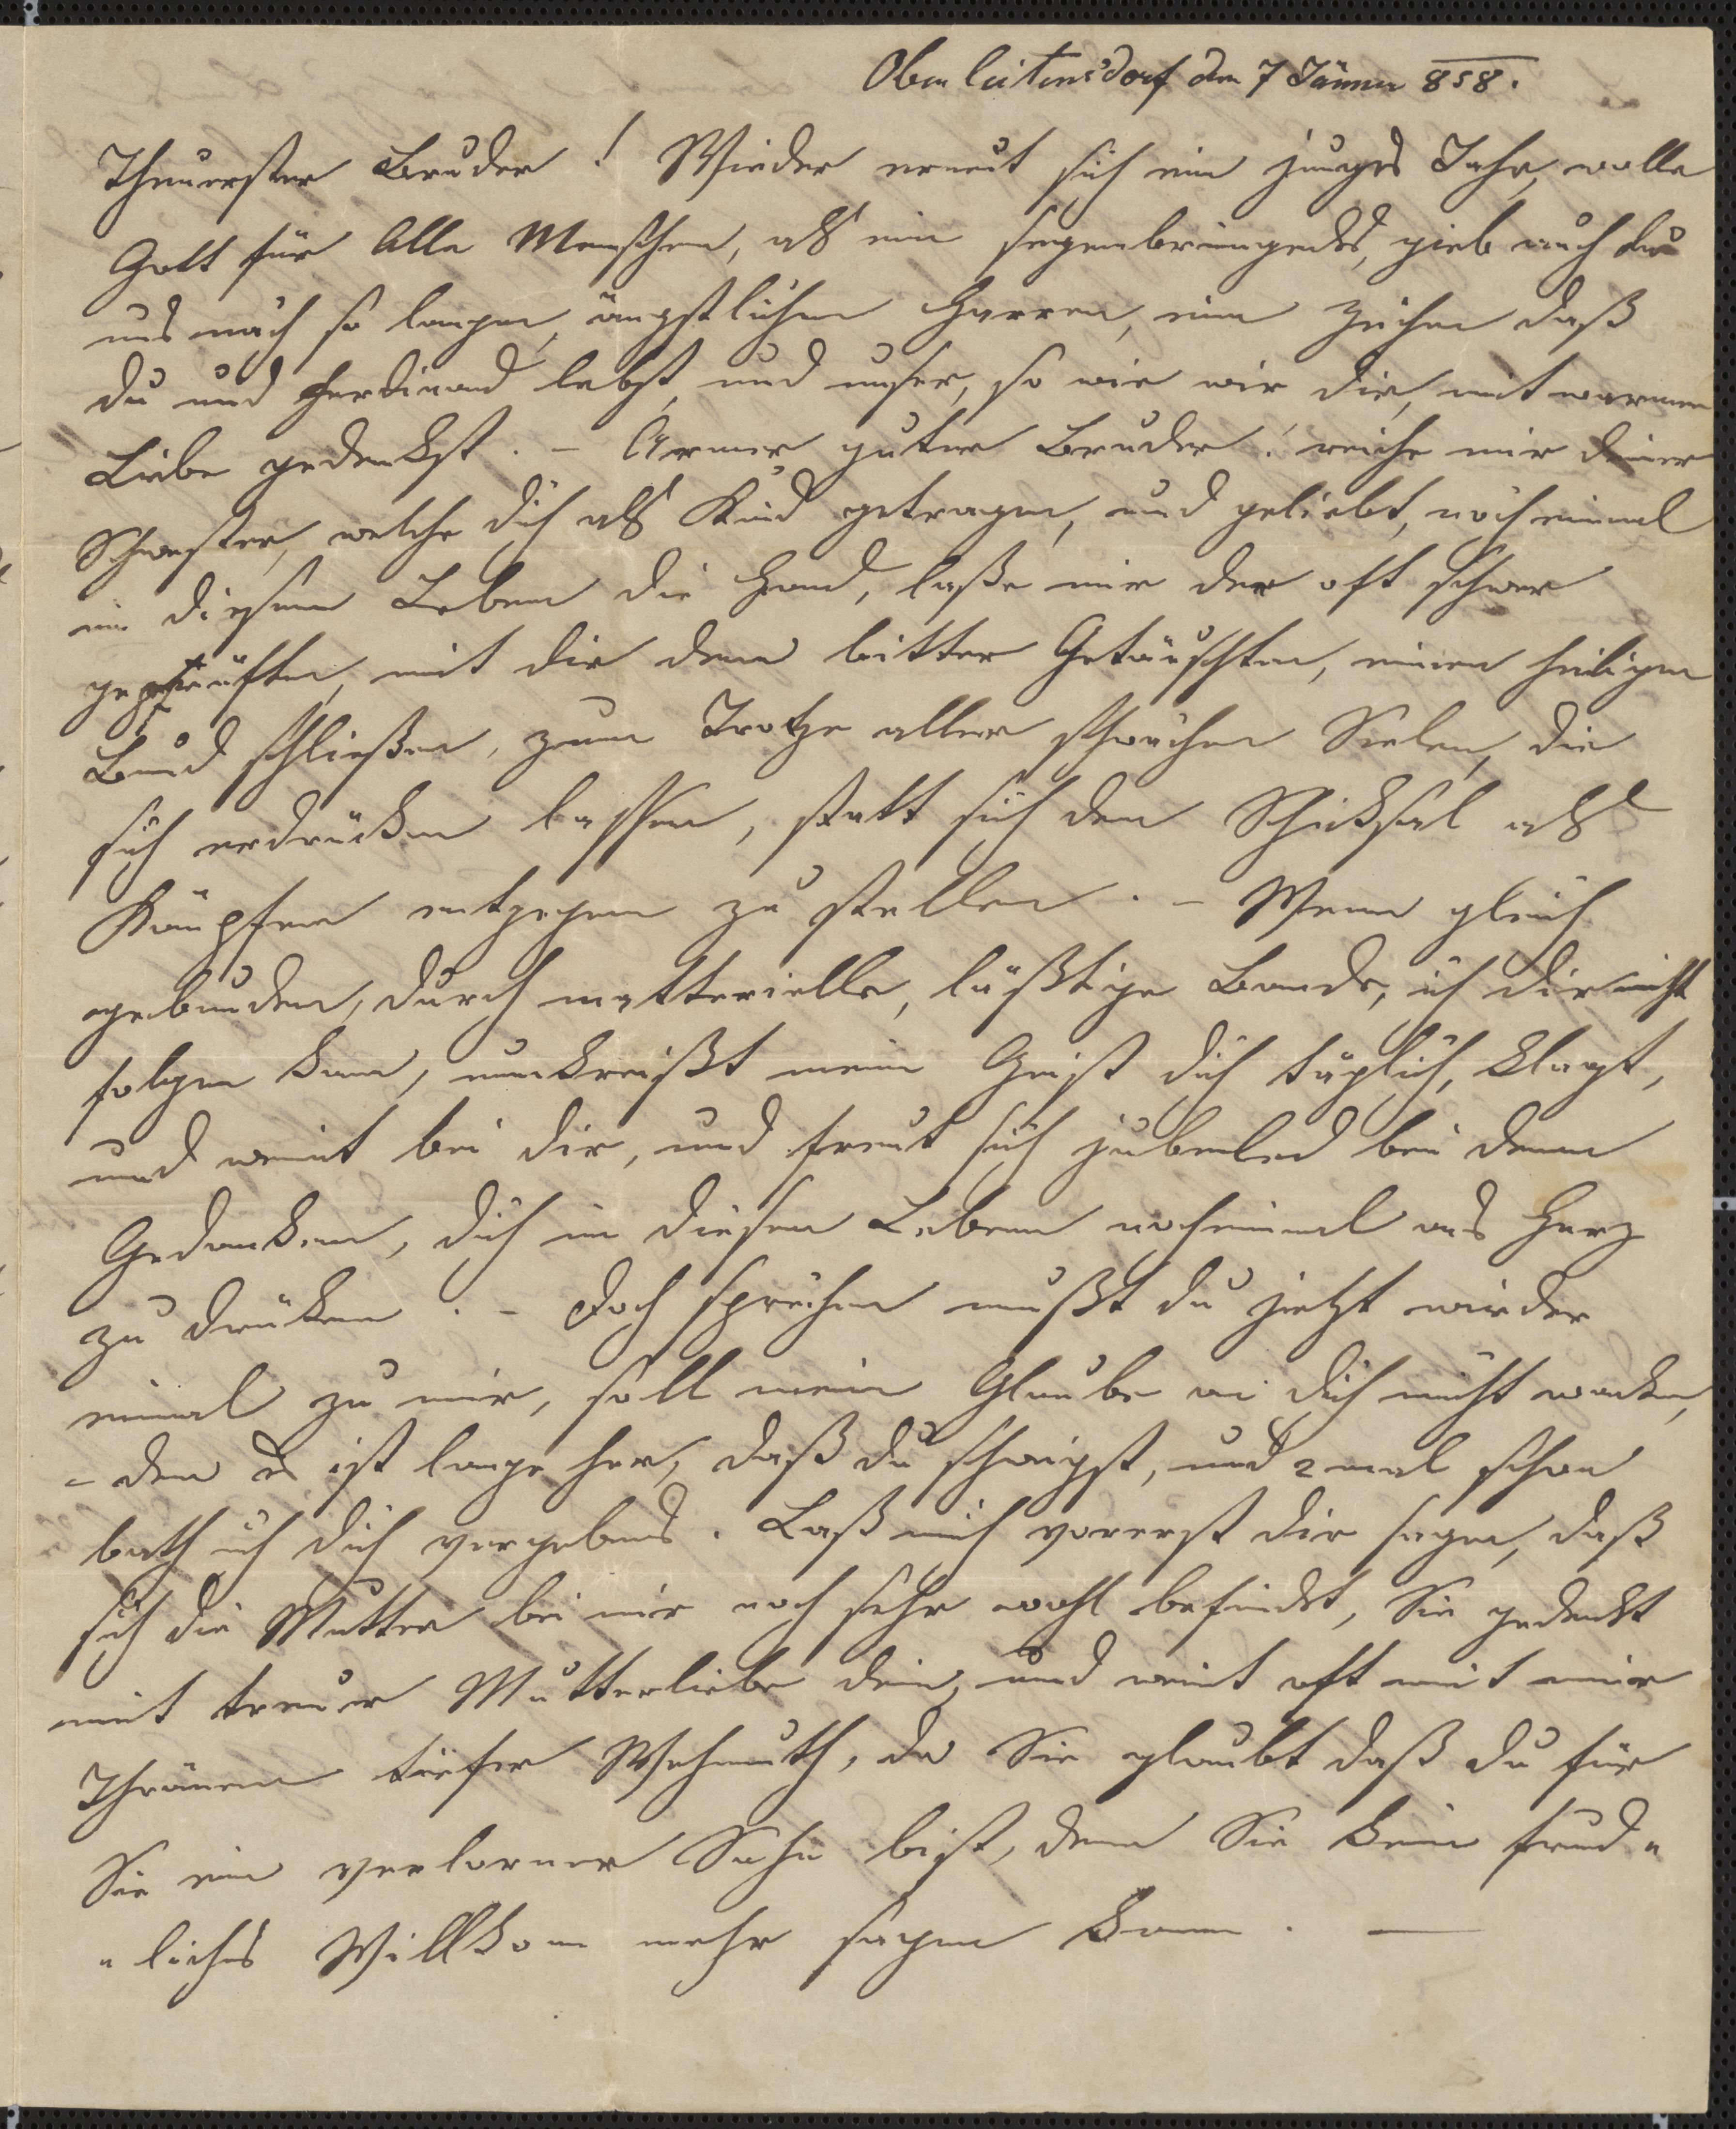 Oberleitensdorf den 7 Jänner 858.
Theuerster Bruder! Wieder erneut sich ein junges Jahr, wolle
Gott für Alle Menschen, als ein segenbringendes, gieb auch du
uns nach so langen, ängstlichen Harren, ein Zeichen daß
du und Ferdinand lebst, und unser, so wie wir dir, mit warmer
Liebe gedenkst. – Armer guter Bruder! reiche mir deiner
Schwester, welche dich als Kind getragen, und geliebt, noch einmal
in diesem Leben die Hand, laße mir der oft schwer
geprüften, mit dir dem bitter Getäuschten, einen heiligen
Bund schließen, zum Trotze aller schwachen Seelen, die
sich erdrücken lassen, statt sich den Schicksal als
Kämpfer entgegen zu stellen. – Wenn gleich
gebunden, durch matterielle, läßtige Bande, ich dir nicht
folgen kann, umkreißt mein Geist dich täglich, klagt,
und weint bei dir, und freut sich jubelnd bei dem
Gedanken, dich in diesem Leben nocheinmal ans Herz
zu drücken. – Doch sprechen mußt du jetzt wieder
einmal zu mir, soll mein Glaube an dich nicht wanken,
– den es ist lange her, daß du schweigst, und 2 mal schon
bath ich dich vergebens. Laß mich vorerst dir sagen, daß
sich die Mutter bei mir noch sehr wohl befindet, Sie gedenkt
mit treuer Mutterliebe dein, und weint oft mit mir
Thränen tiefer Wehmuth, da Sie glaubt daß du für
Sie ein verlorner Sohn bist, dem Sie kein freud„
„liches Willkom mehr sagen kann. —